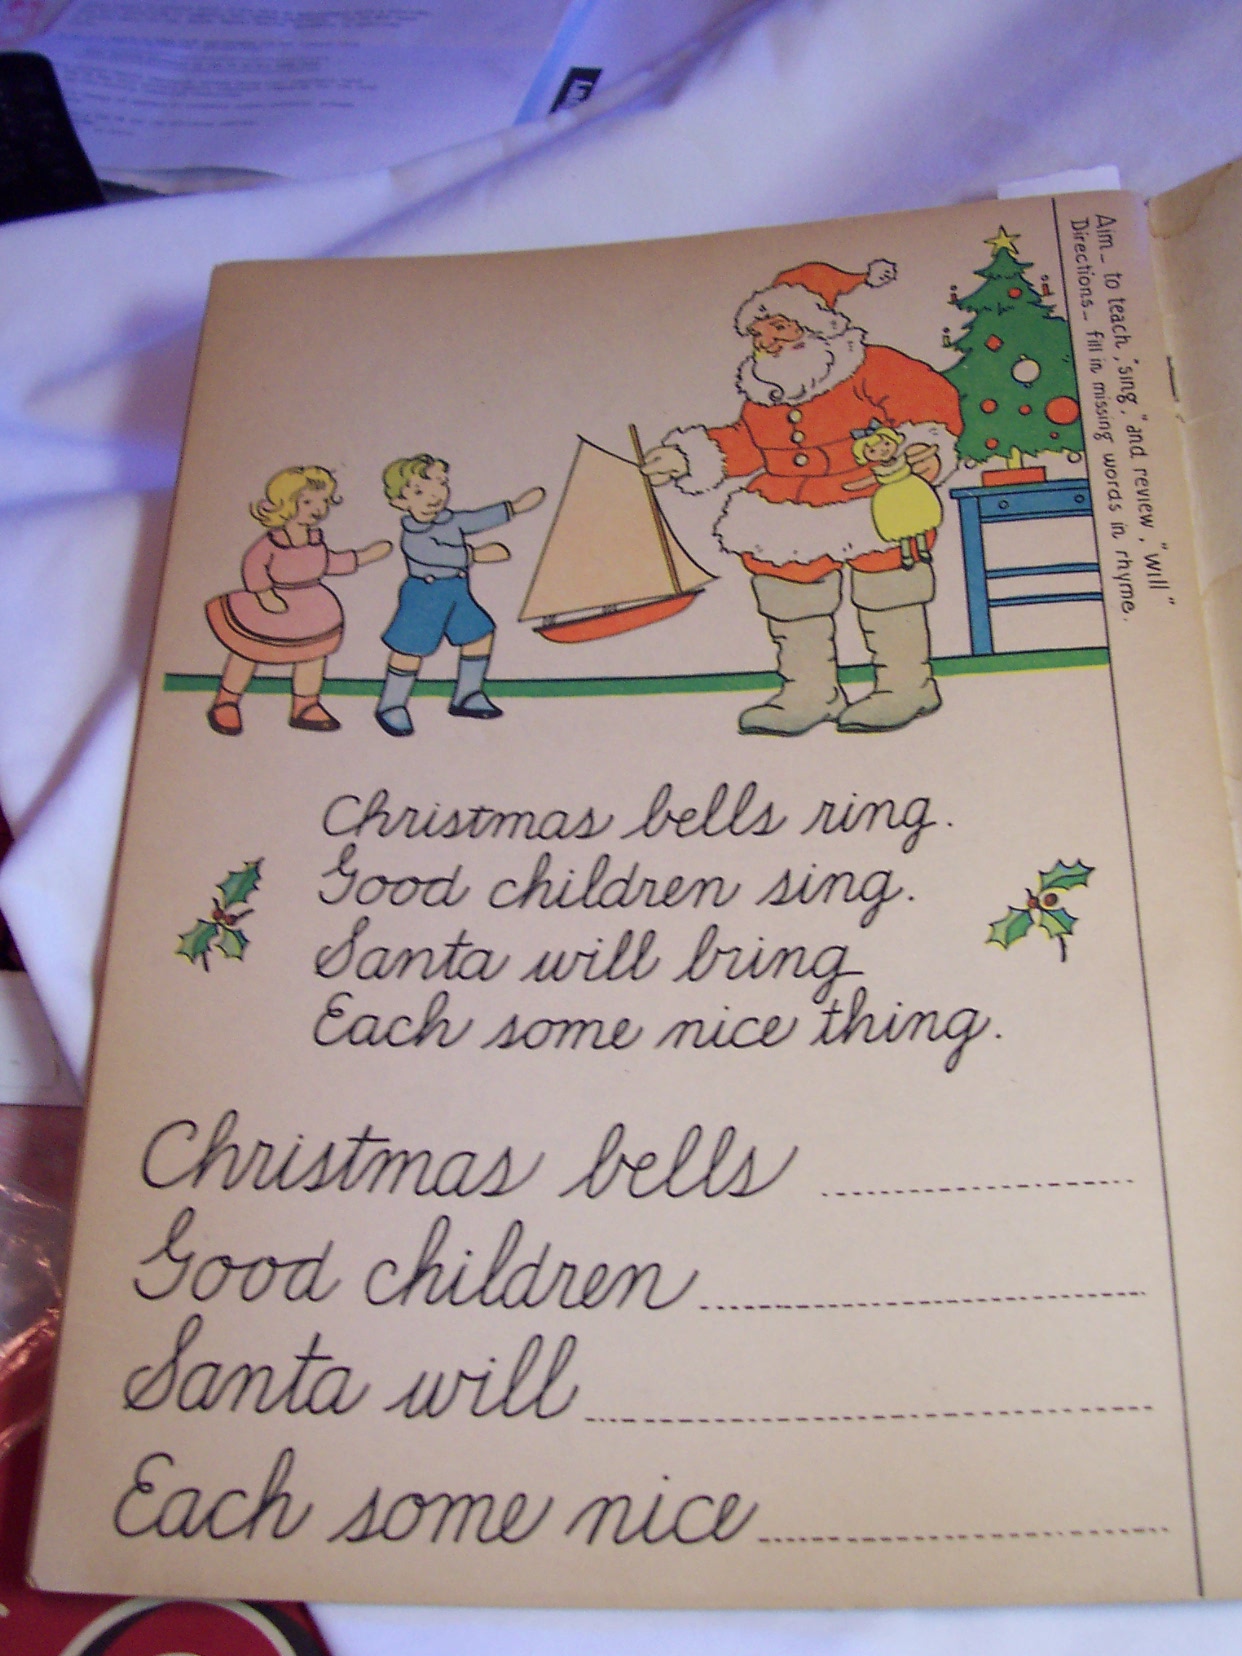 Aim - to teach, "sing," and review, "will"
Directions - fill in missing words in rhyme.
Christmas bells ring.
Good children sing.
Santa will bring
Each some nice thing.
Christmas bells
Good children
Santa will
Each some nice